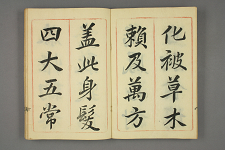 化被草木
賴及萬方
蓋此身髮
四大五常